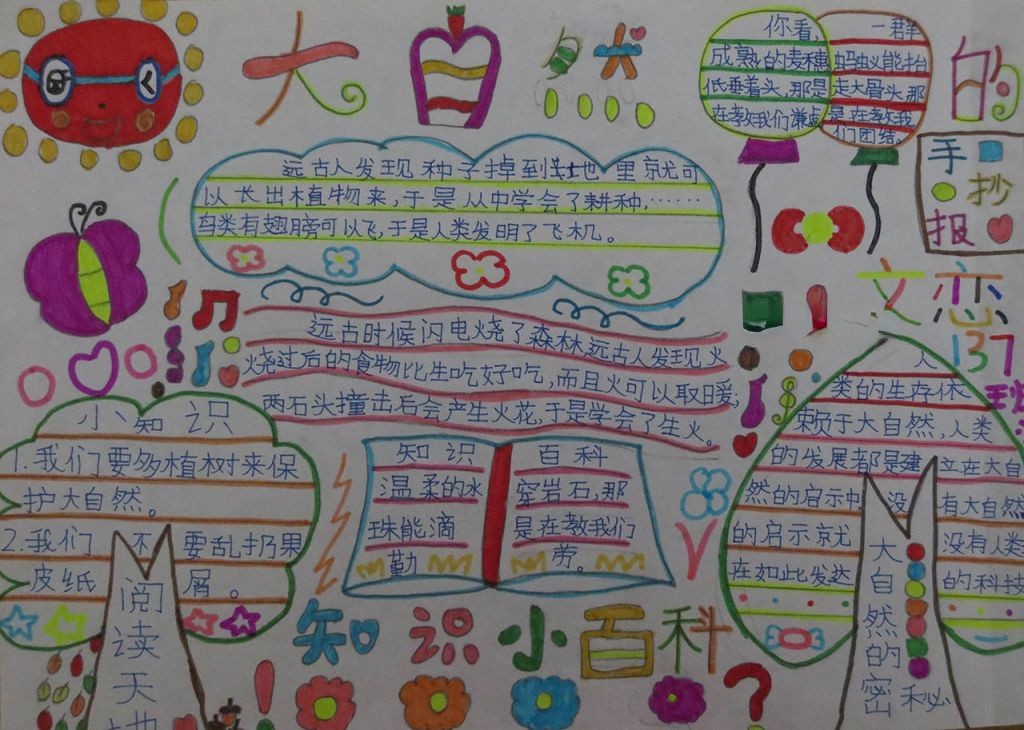 大自然的
手抄报
你看,
成熟的麦穗
低垂着头,那是
在教我们谦虚
一群
蚂蚁能抬
走大眉头,那
是在教我
们团结。
远古人发现种子掉到土地里就可
以长出植物来,于是从中学会了耕种,……
鸟类有翅膀可以飞,于是人类发明了飞机。
文恋
137
远古时候闪电烧了森林远古人发现火
烧过后的食物比生吃好吃,而且火可以取暖;
两石头撞击后会产生火花,于是学会了生火。
小知识
1.我们要多植树来保
护大自然。
2.我们不要乱扔果
皮纸屑。
阅
读
天
地
知识
温柔的水
珠能滴
勤
百科
穿岩石,那
是在教我们
劳。
人
类的生存依
赖于大自然,人类
的发展都是建立在大自
然的启示中,没有大自然
的启示就没有人类
在如此发达的科技
大自然的密秘
知识小百科